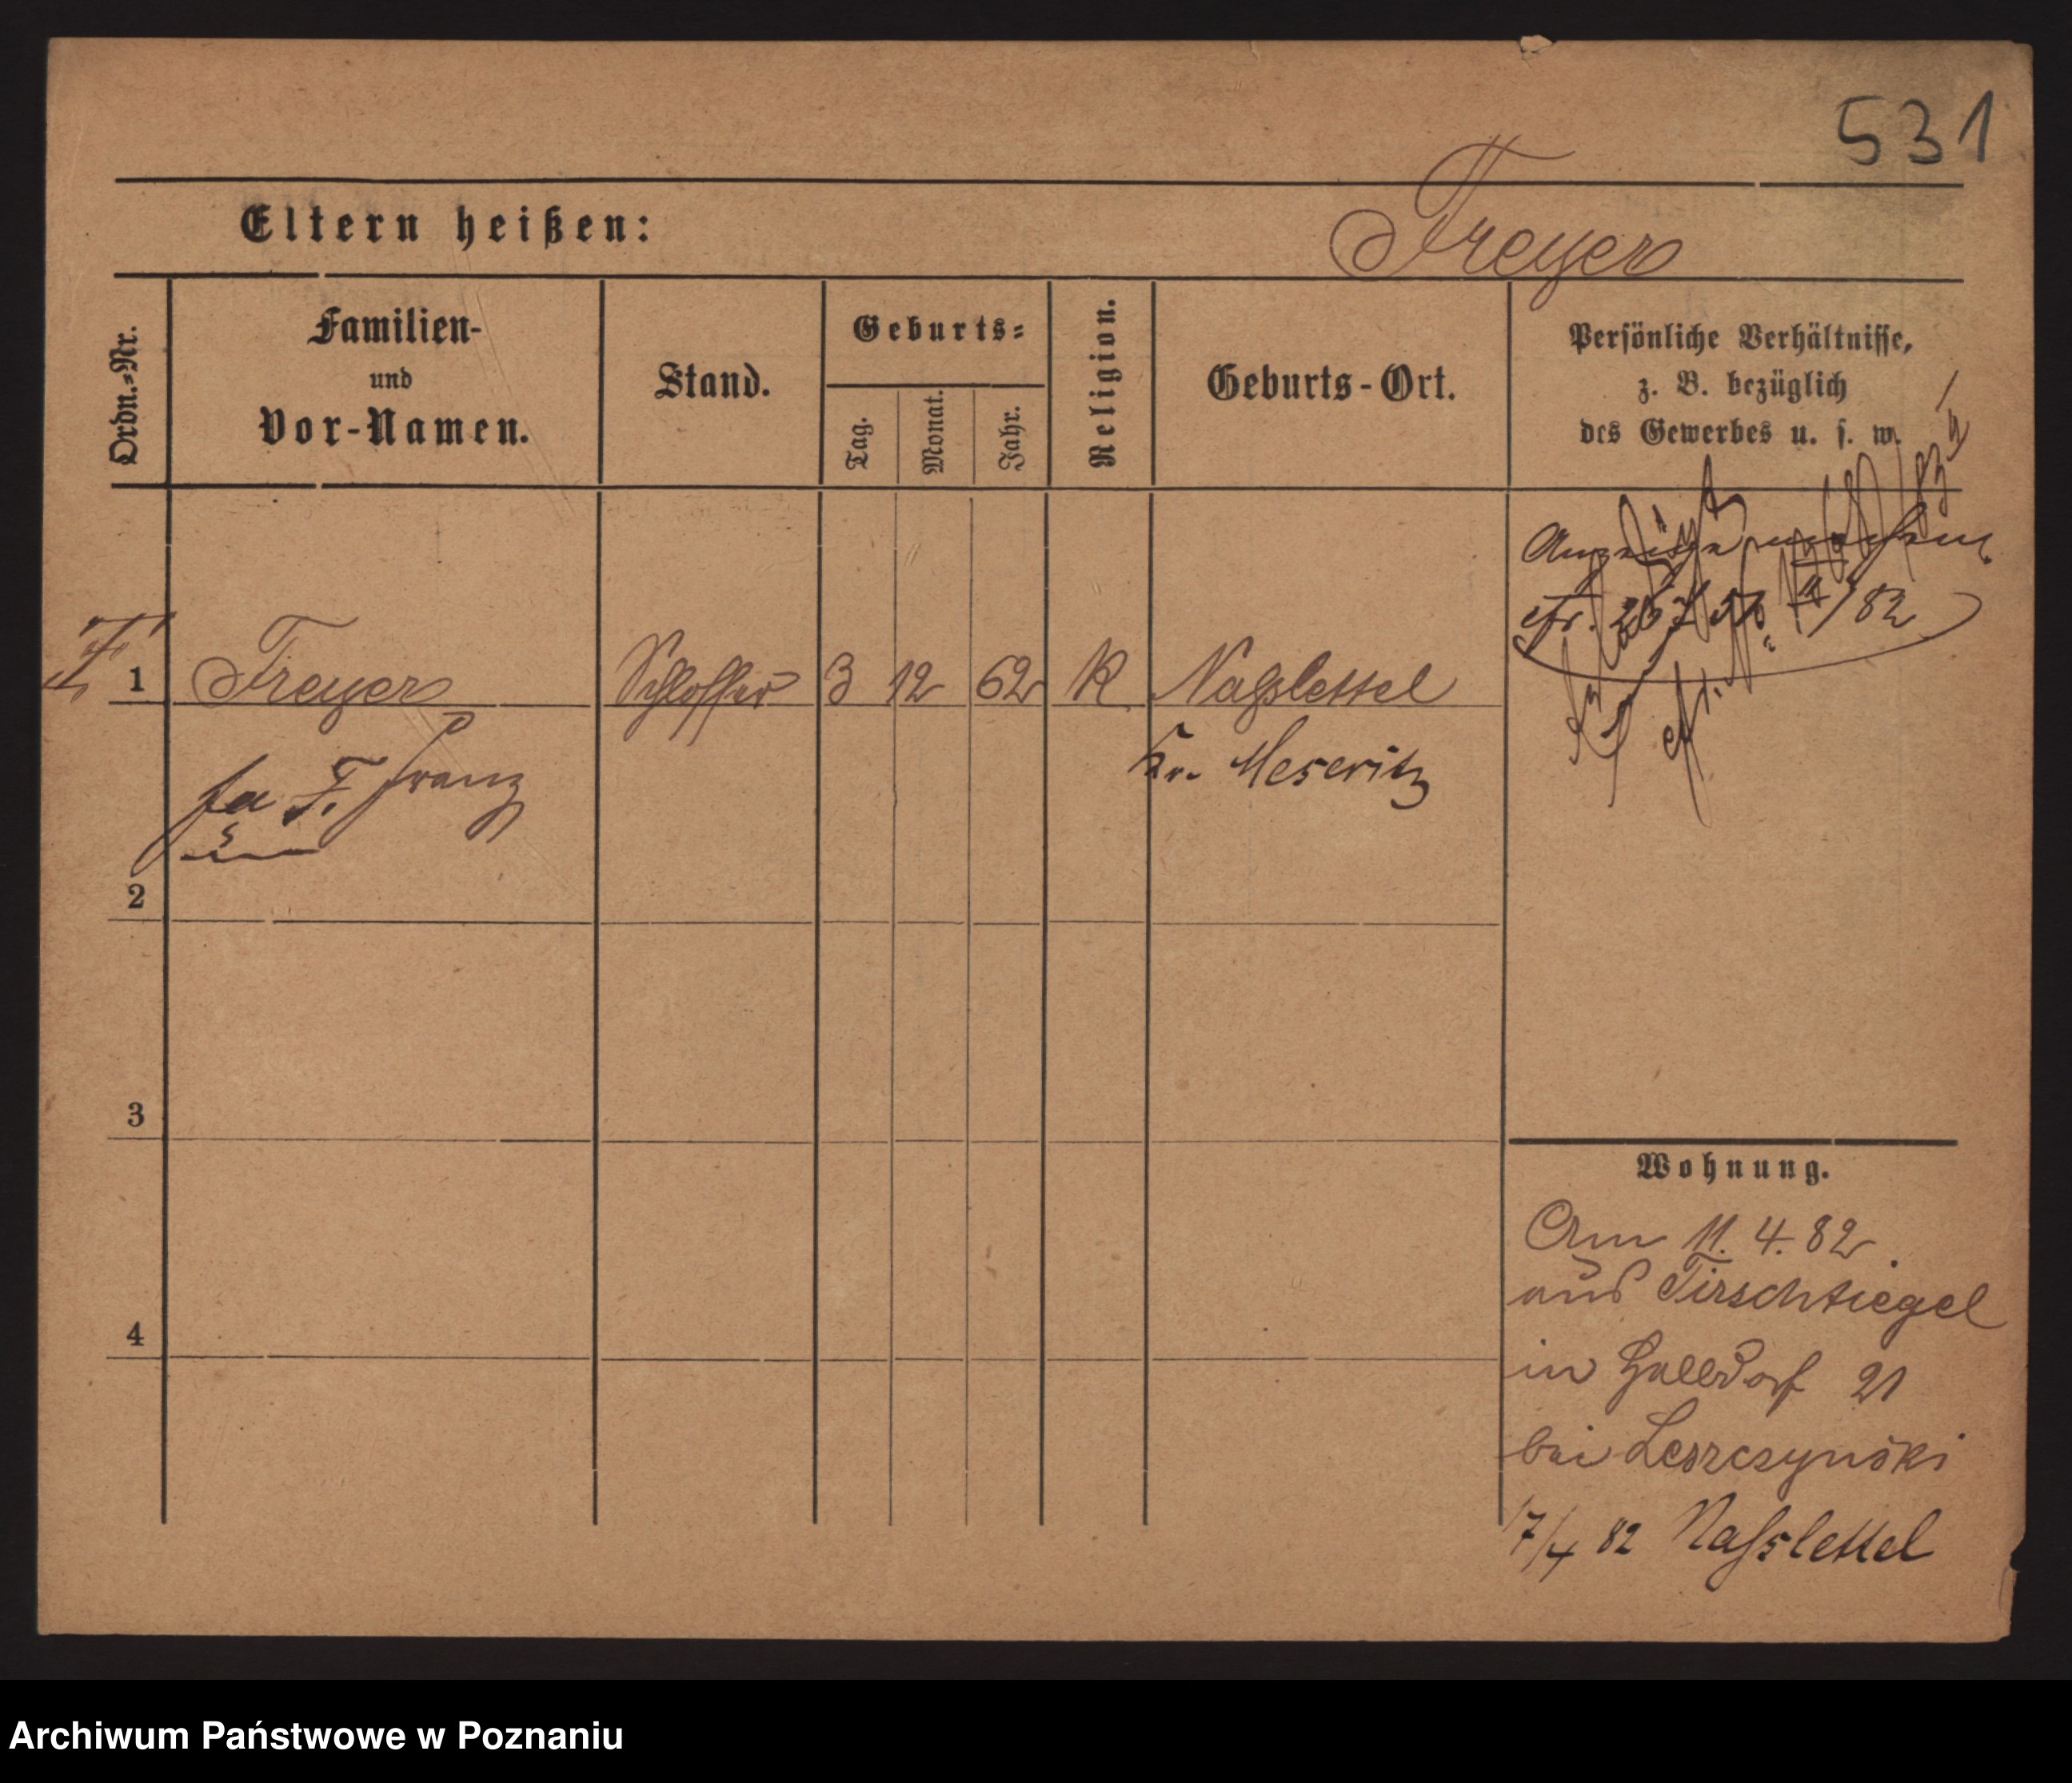 531
Eltern heißen: Freyer
Ordn.=Nr.
Familien-
und
Vor-Namen.
Stand.
Geburts=
Tag.
Monat.
Jahr.
Religion.
Geburts-Ort.
Persönliche Verhältnisse,
z. B. bezüglich
des Gewerbes u. s. w.
Anzeige machen
/82
1 Freyer Schlosser 3 12 62 K Naßlettel
F. Franz
Kr. Meseritz
2
3
4
Wohnung.
11. 4. 82
aus Tirschtiegel
in Halldorf 21
bei Leszczynski
17/4 82 Naßlettel
Archiwum Państwowe w Poznaniu